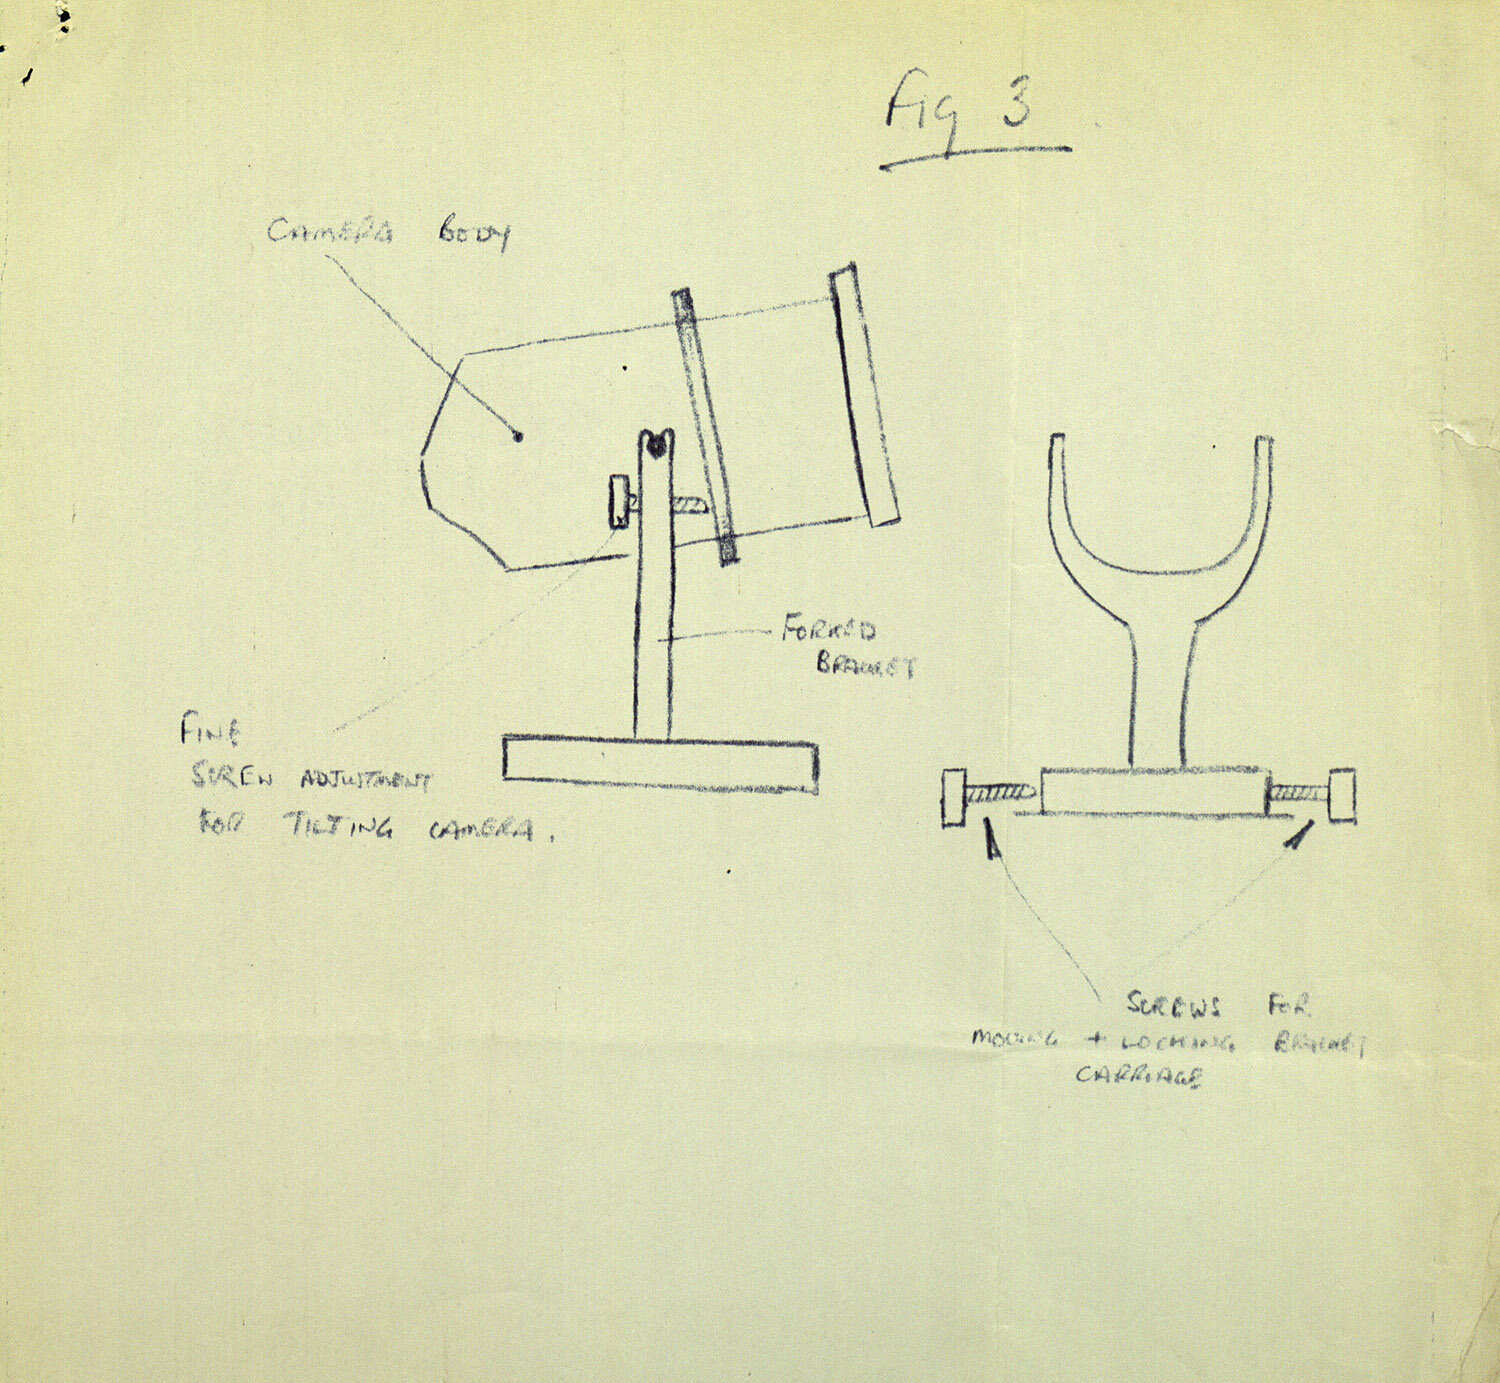 Fig 3
CAMERA BODY
FORKED
BRACKET
FINE
SCREW ADJUSTMENT
FOR TILTING CAMERA.
SCREWS FOR
MOVING + LOCKING BRACKET
CARRIAGE